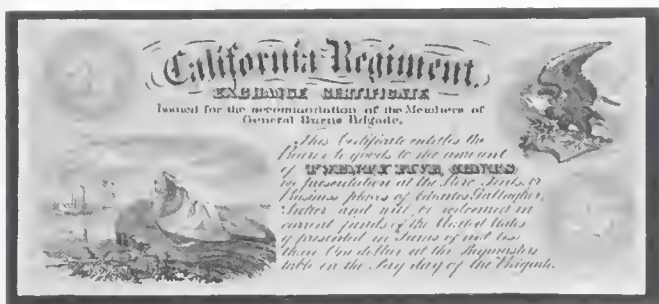 California Regiment.
EXCHANGE CERTIFICATE
Issued for the accommodation of the Members of
General Burns Brigade.
This Certificate entitles the
Bearer to goods to the amount
of TWENTY FIVE CENTS
on presentation at the Store Tents or
Business places of Charles Gallagher,
Sutler and will be redeemed in
current funds of the United States
if presented in Sums of not less
than One dollar at the Paymasters
table on the Pay day of the Brigade.